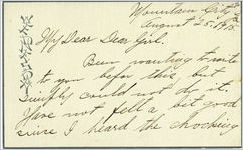 Mountain City
August 25, 1915.
My Dear Dear Girl.
Been wanting to write
to you befor this but
Simply could not do it.
Have not felt a bit good
since I heard the shocking